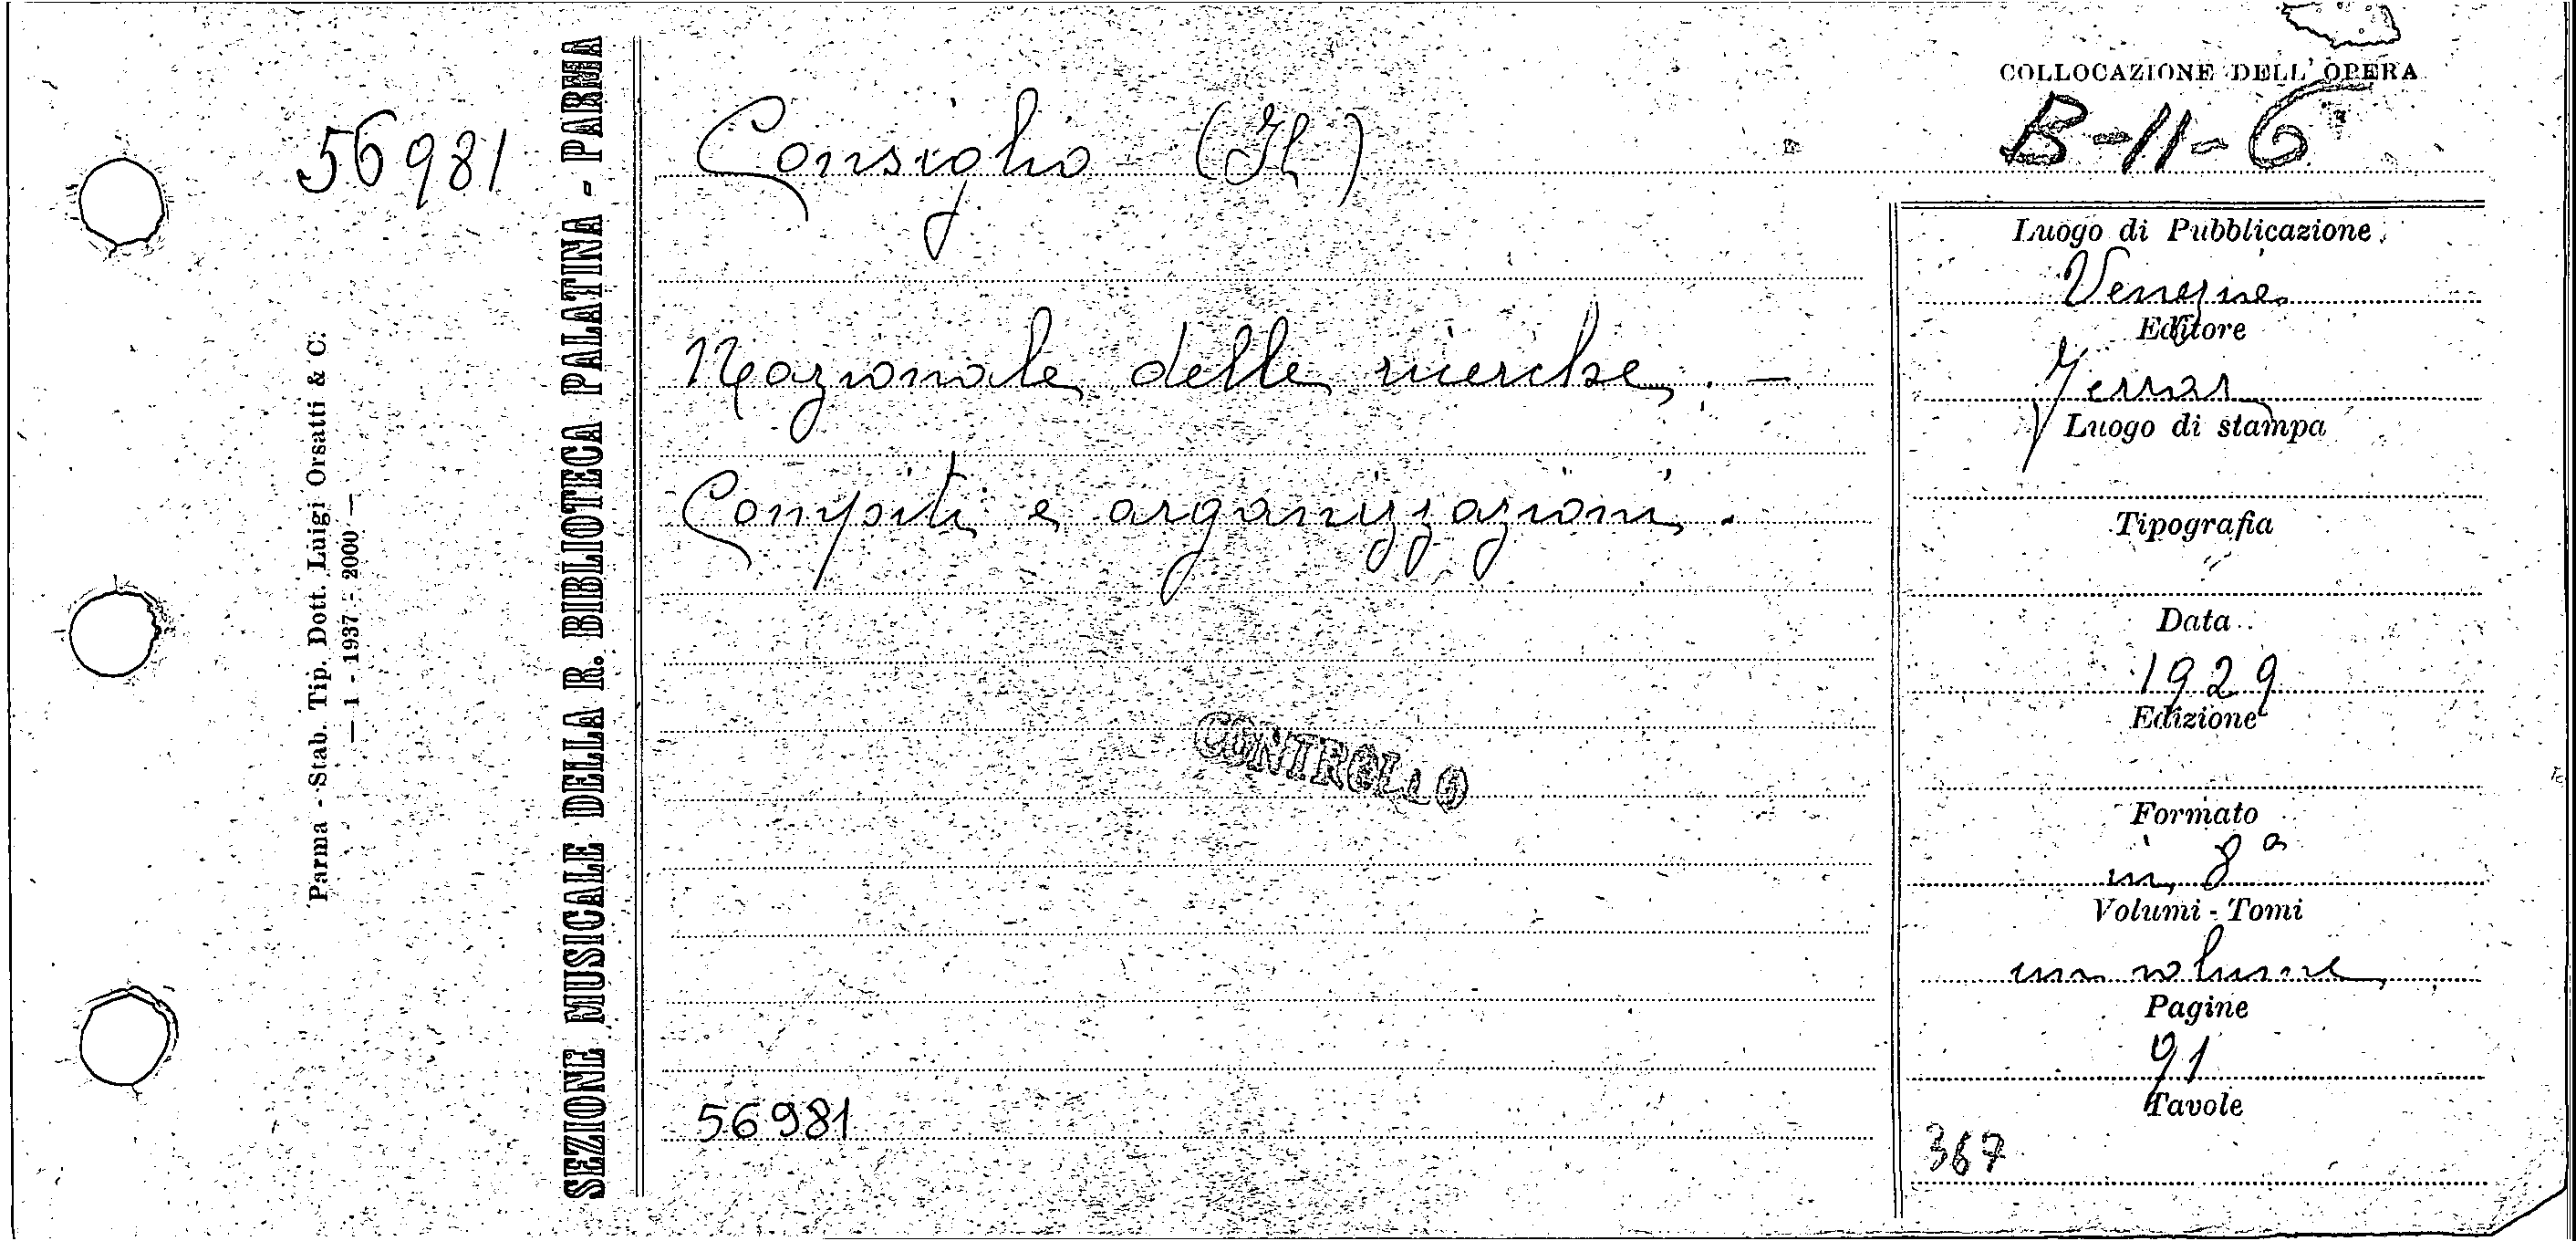 COLLOCAZIONE DELL' OPERA
B-11-6
56981
Consiglio (Il)
Nazionale delle ricerche. -
Compiti e organizzazioni.
CONTROLLO
56981
Luogo di Pubblicazione
Venezia
Editore
Ferrari
Luogo di stampa
Tipografia
Data
1929
Edizione
Formato
in 8°
Volumi - Tomi
un volume
Pagine
91
Tavole
367
SEZIONE MUSICALE DELLA R. BIBLIOTECA PALATINA - PARMA
Parma - Stab. Tip. Dott. Luigi Orsatti & C.
— 1 - 1937 - 2000 —